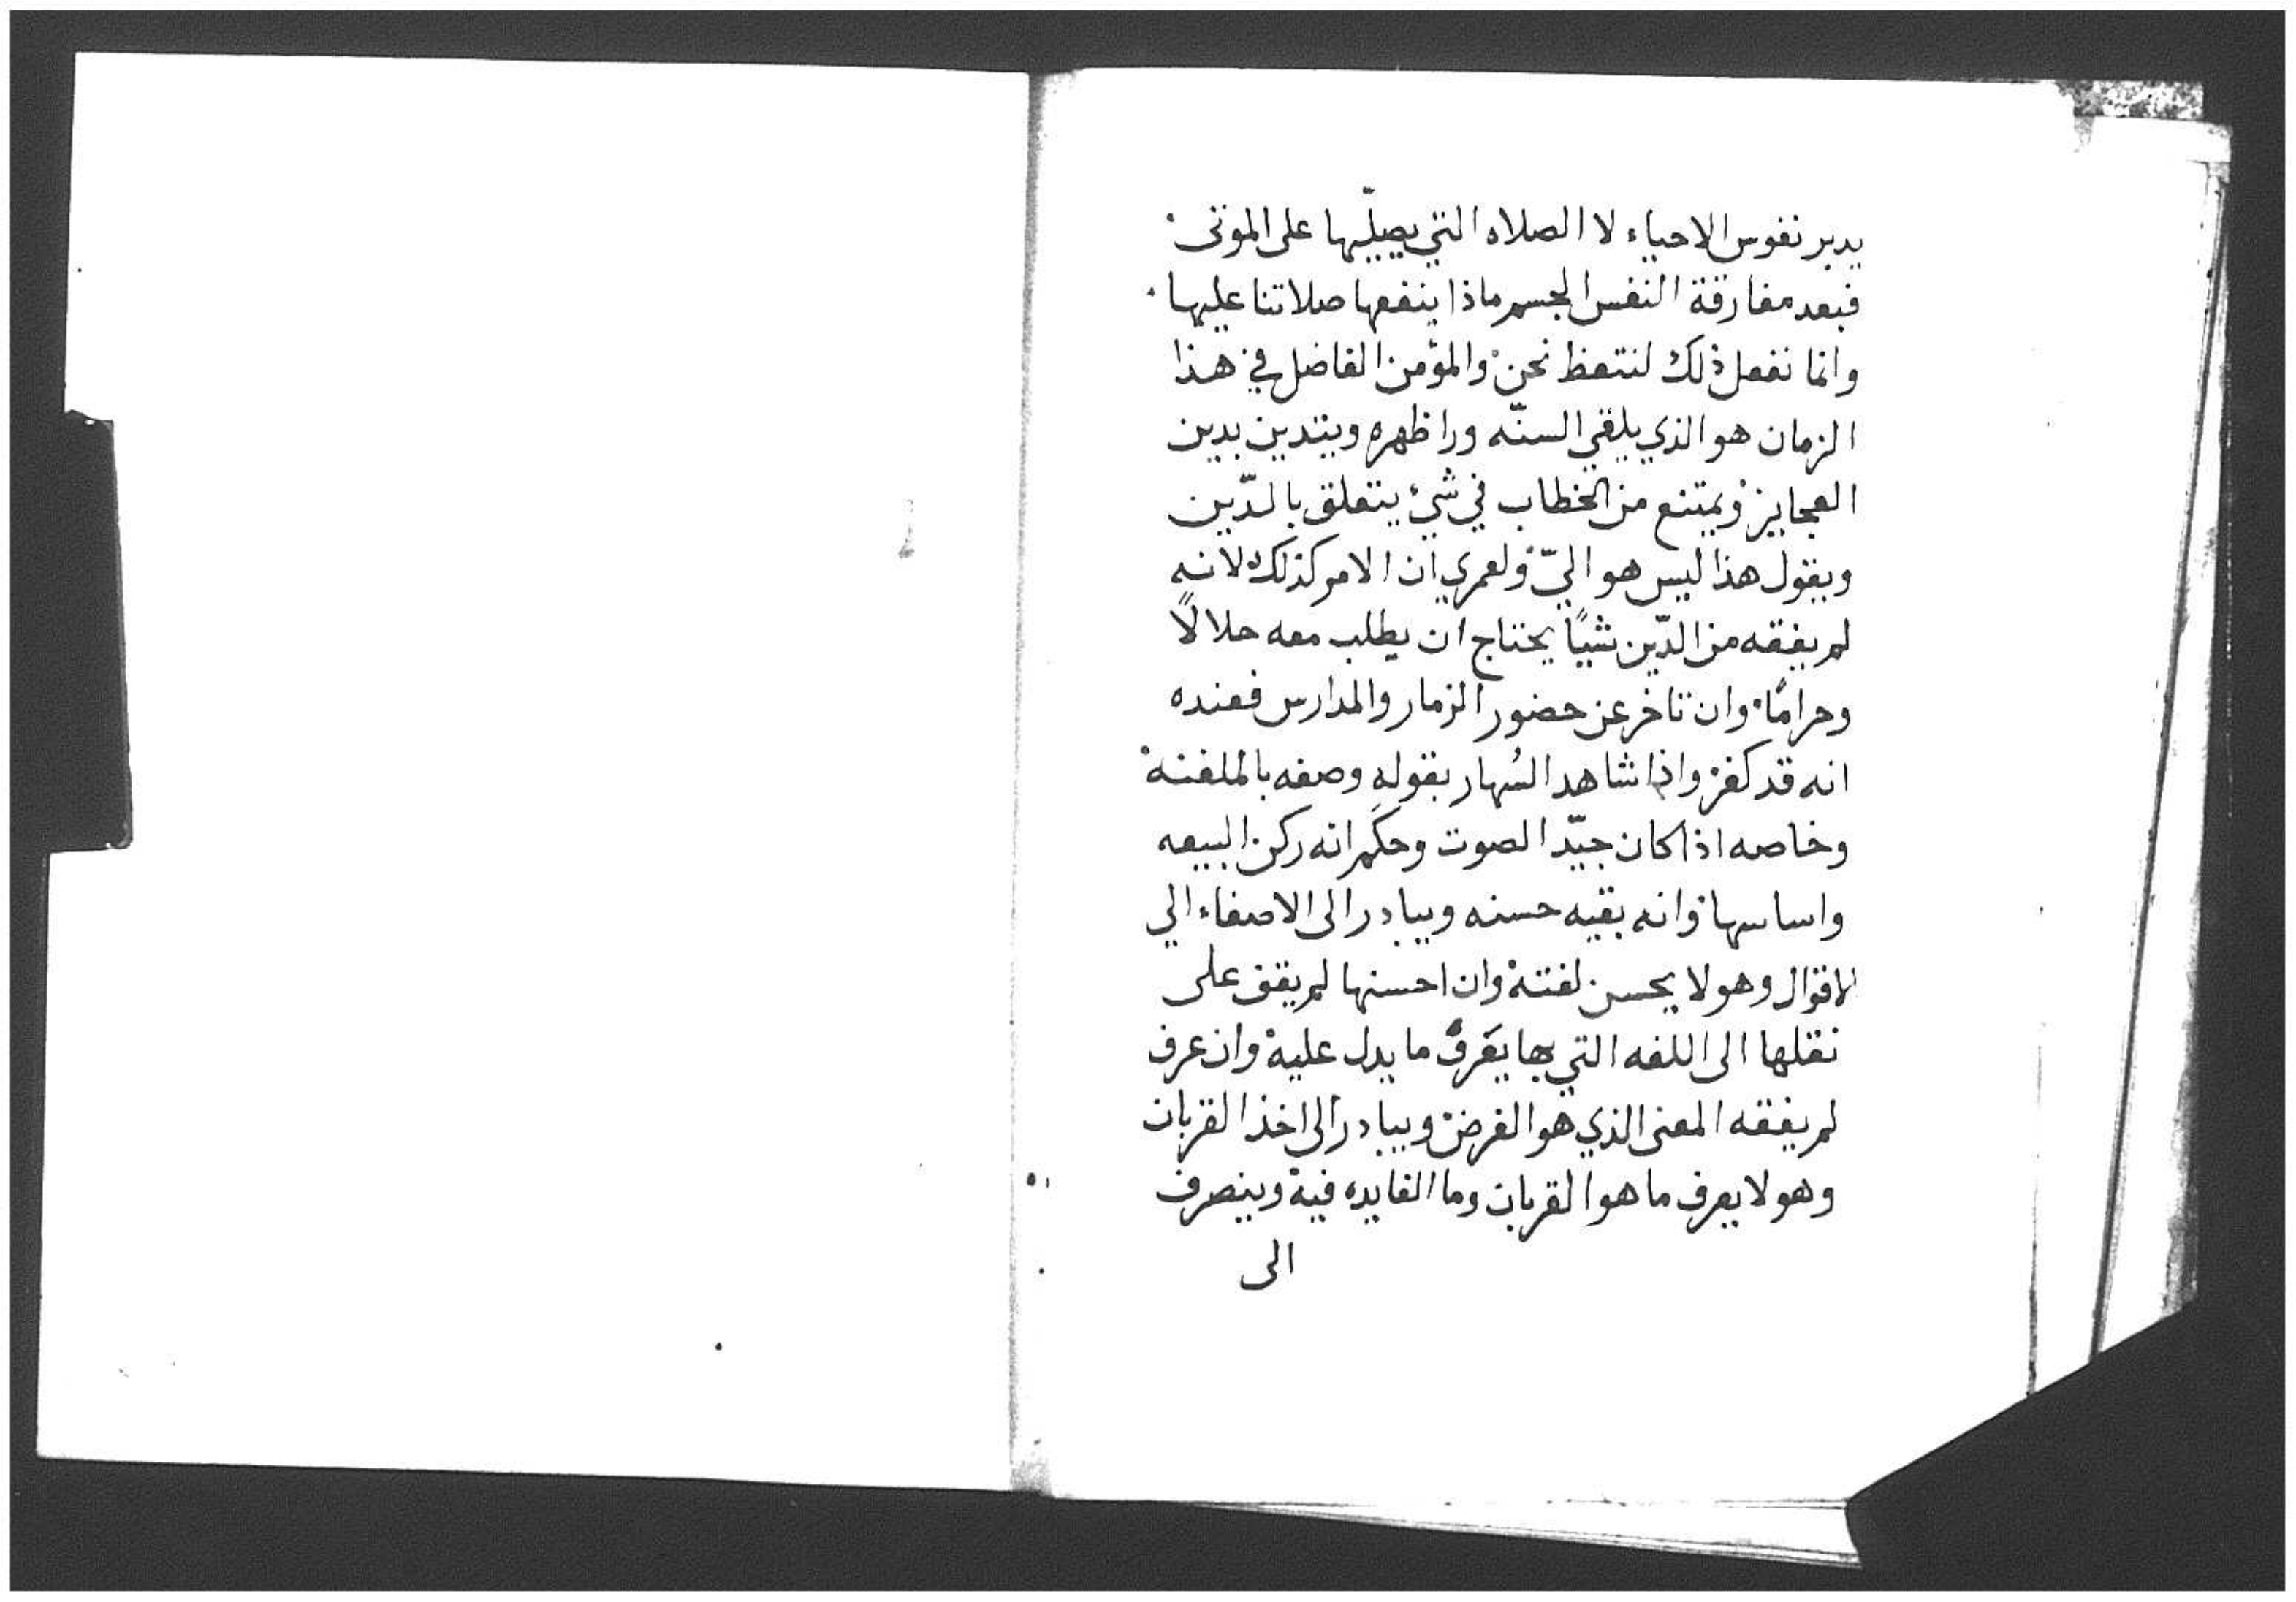 يدبر نفوس الاحياء لا الصلاه التي يصلّيها على الموتى
فبعد مفارقة النفس الجسم ماذا ينفعها صلاتنا عليها
وانما نفعل ذلك لنتعظ نحن والمؤمن الفاضل في هذا
الزمان هو الذي يلقي السنّه ورا ظهره ويتدين بدين
العجايز ويمتنع من الخطاب في شيء يتعلق بالدّين
ويقول هذا ليس هو اليّ ولعمري ان الامر كذلك لانه
لم يفقه من الدّين شيًا يحتاج ان يطلب معه حلالًا
وحرامًا وان تاخر عن حضور الزمار والمدارس فعنده
انه قد كفر واذا شاهد السُهار بقوله وصفه بالملفنه
وخاصه اذا كان جيّد الصوت وحكم انه ركن البيعه
واساسها وانه بقيه حسنه ويبادر الى الاصغاء الي
الاقوال وهو لا يحسن لغته وان احسنها لم يقف على
نقلها الى اللغه التي بها يَعْرِفُ ما يدل عليه وان عرف
لم يفقه المعنى الذي هو الغرض ويبادر الى اخذ القربان
وهو لا يعرف ما هو القربان وما الفايده فيه وينصرف
الى